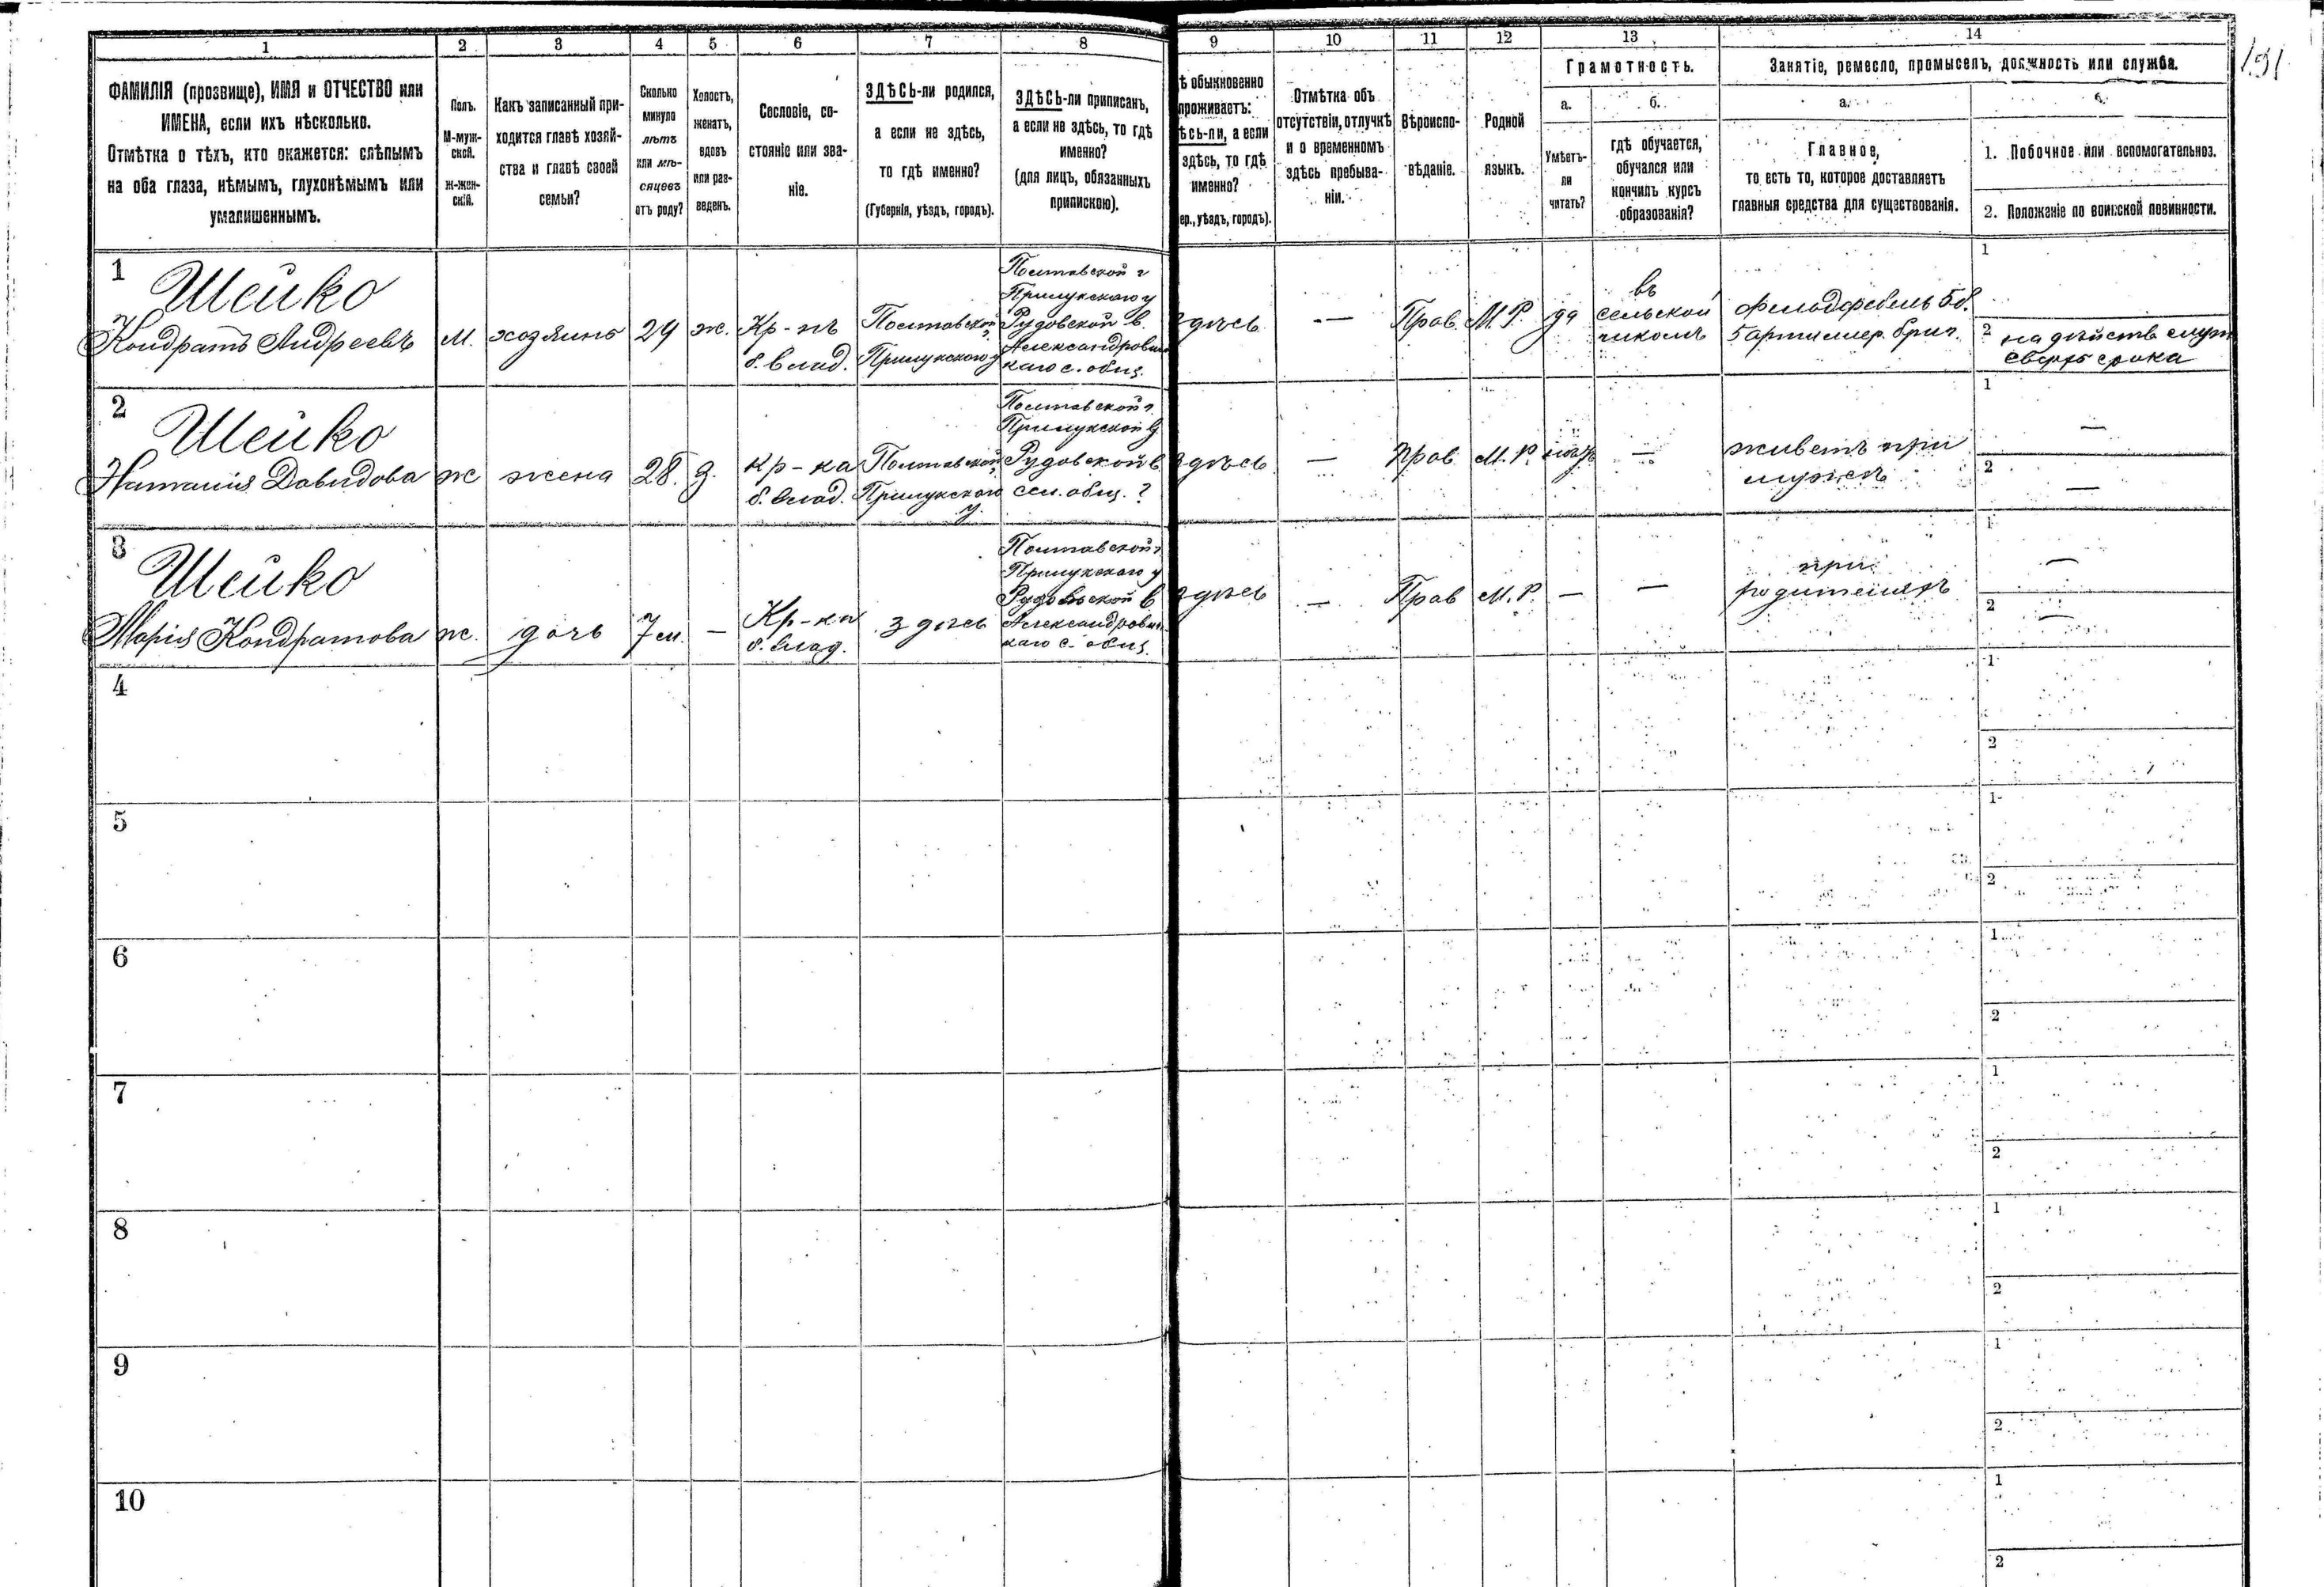 1 2 3 4 5 6 7 8 9 10 11 12 13 14
191
ФАМИЛІЯ (прозвище), ИМЯ и ОТЧЕСТВО или
ИМЕНА, если ихъ нѣсколько.
Отмѣтка о тѣхъ, кто окажется: слѣпымъ
на оба глаза, нѣмымъ, глухонѣмымъ или
умалишеннымъ.
Полъ.
М-муж-
ской.
Ж-жен-
скій.
Какъ записанный при-
ходится главѣ хозяй-
ства и главѣ своей
семьи?
Сколько
минуло
лѣтъ
или мѣ-
сяцевъ
отъ роду?
Холостъ,
женатъ,
вдовъ
или раз-
веденъ.
Сословіе, со-
стояніе или зва-
ніе.
ЗДѢСЬ-ли родился,
а если не здѣсь,
то гдѣ именно?
(Губернія, уѣздъ, городъ).
ЗДѢСЬ-ли приписанъ,
а если не здѣсь, то гдѣ
именно?
(для лицъ, обязанныхъ
припискою).
ѣ обыкновенно
проживаетъ:
ѣсь-ли, а если
здѣсь, то гдѣ
именно?
ер., уѣздъ, городъ).
Отмѣтка объ
отсутствіи, отлучкѣ
и о временномъ
здѣсь пребыва-
ніи.
Вѣроиспо-
вѣданіе.
Родной
языкъ.
Грамотность.
а.
Умѣетъ-
ли
читать?
б.
гдѣ обучается,
обучался или
кончилъ курсъ
образованія?
Занятіе, ремесло, промыселъ, должность или служба.
а.
Главное,
то есть то, которое доставляетъ
главныя средства для существованія.
б.
1. Побочное или вспомогательное.
2. Положеніе по воинской повинности.
1
Шейко
Кондратъ Андреевъ
М.
хозяинъ
29
ж.
Кр-нъ
б. влад.
Полтавской г.
Прилукскаго у
Полтавской г
Прилукскаго у
Рудовской в.
Александровс
каго с. общ.
здѣсь
—
Прав.
М. Р.
да
въ
сельской
школѣ
фельдфебель 5 б.
5 артиллер. бриг.
1
2 на дѣйств служ
сверхъ срока
2
Шейко
Наталія Давидова
ж
жена
28.
з.
Кр-ка
б. влад.
Полтавской г.
Прилукскаго
у.
Полтавской г.
Прилукской у
Рудовской в
сел. общ. ?
здѣсь
—
Прав
М. Р.
нѣтъ
—
живетъ при
мужѣ
1 —
2 —
3
Шейко
Марія Кондратова
ж.
дочь
7 м.
—
Кр-ка
б. влад.
здѣсь
Полтавской г.
Прилукскаго у
Рудовской в
Александровс
каго с. общ.
здѣсь
—
Прав
М. Р.
—
—
при
родителяхъ
1 —
2 —
4
1
2
5
1
2
6
1
2
7
1
2
8
1
2
9
1
2
10
1
2